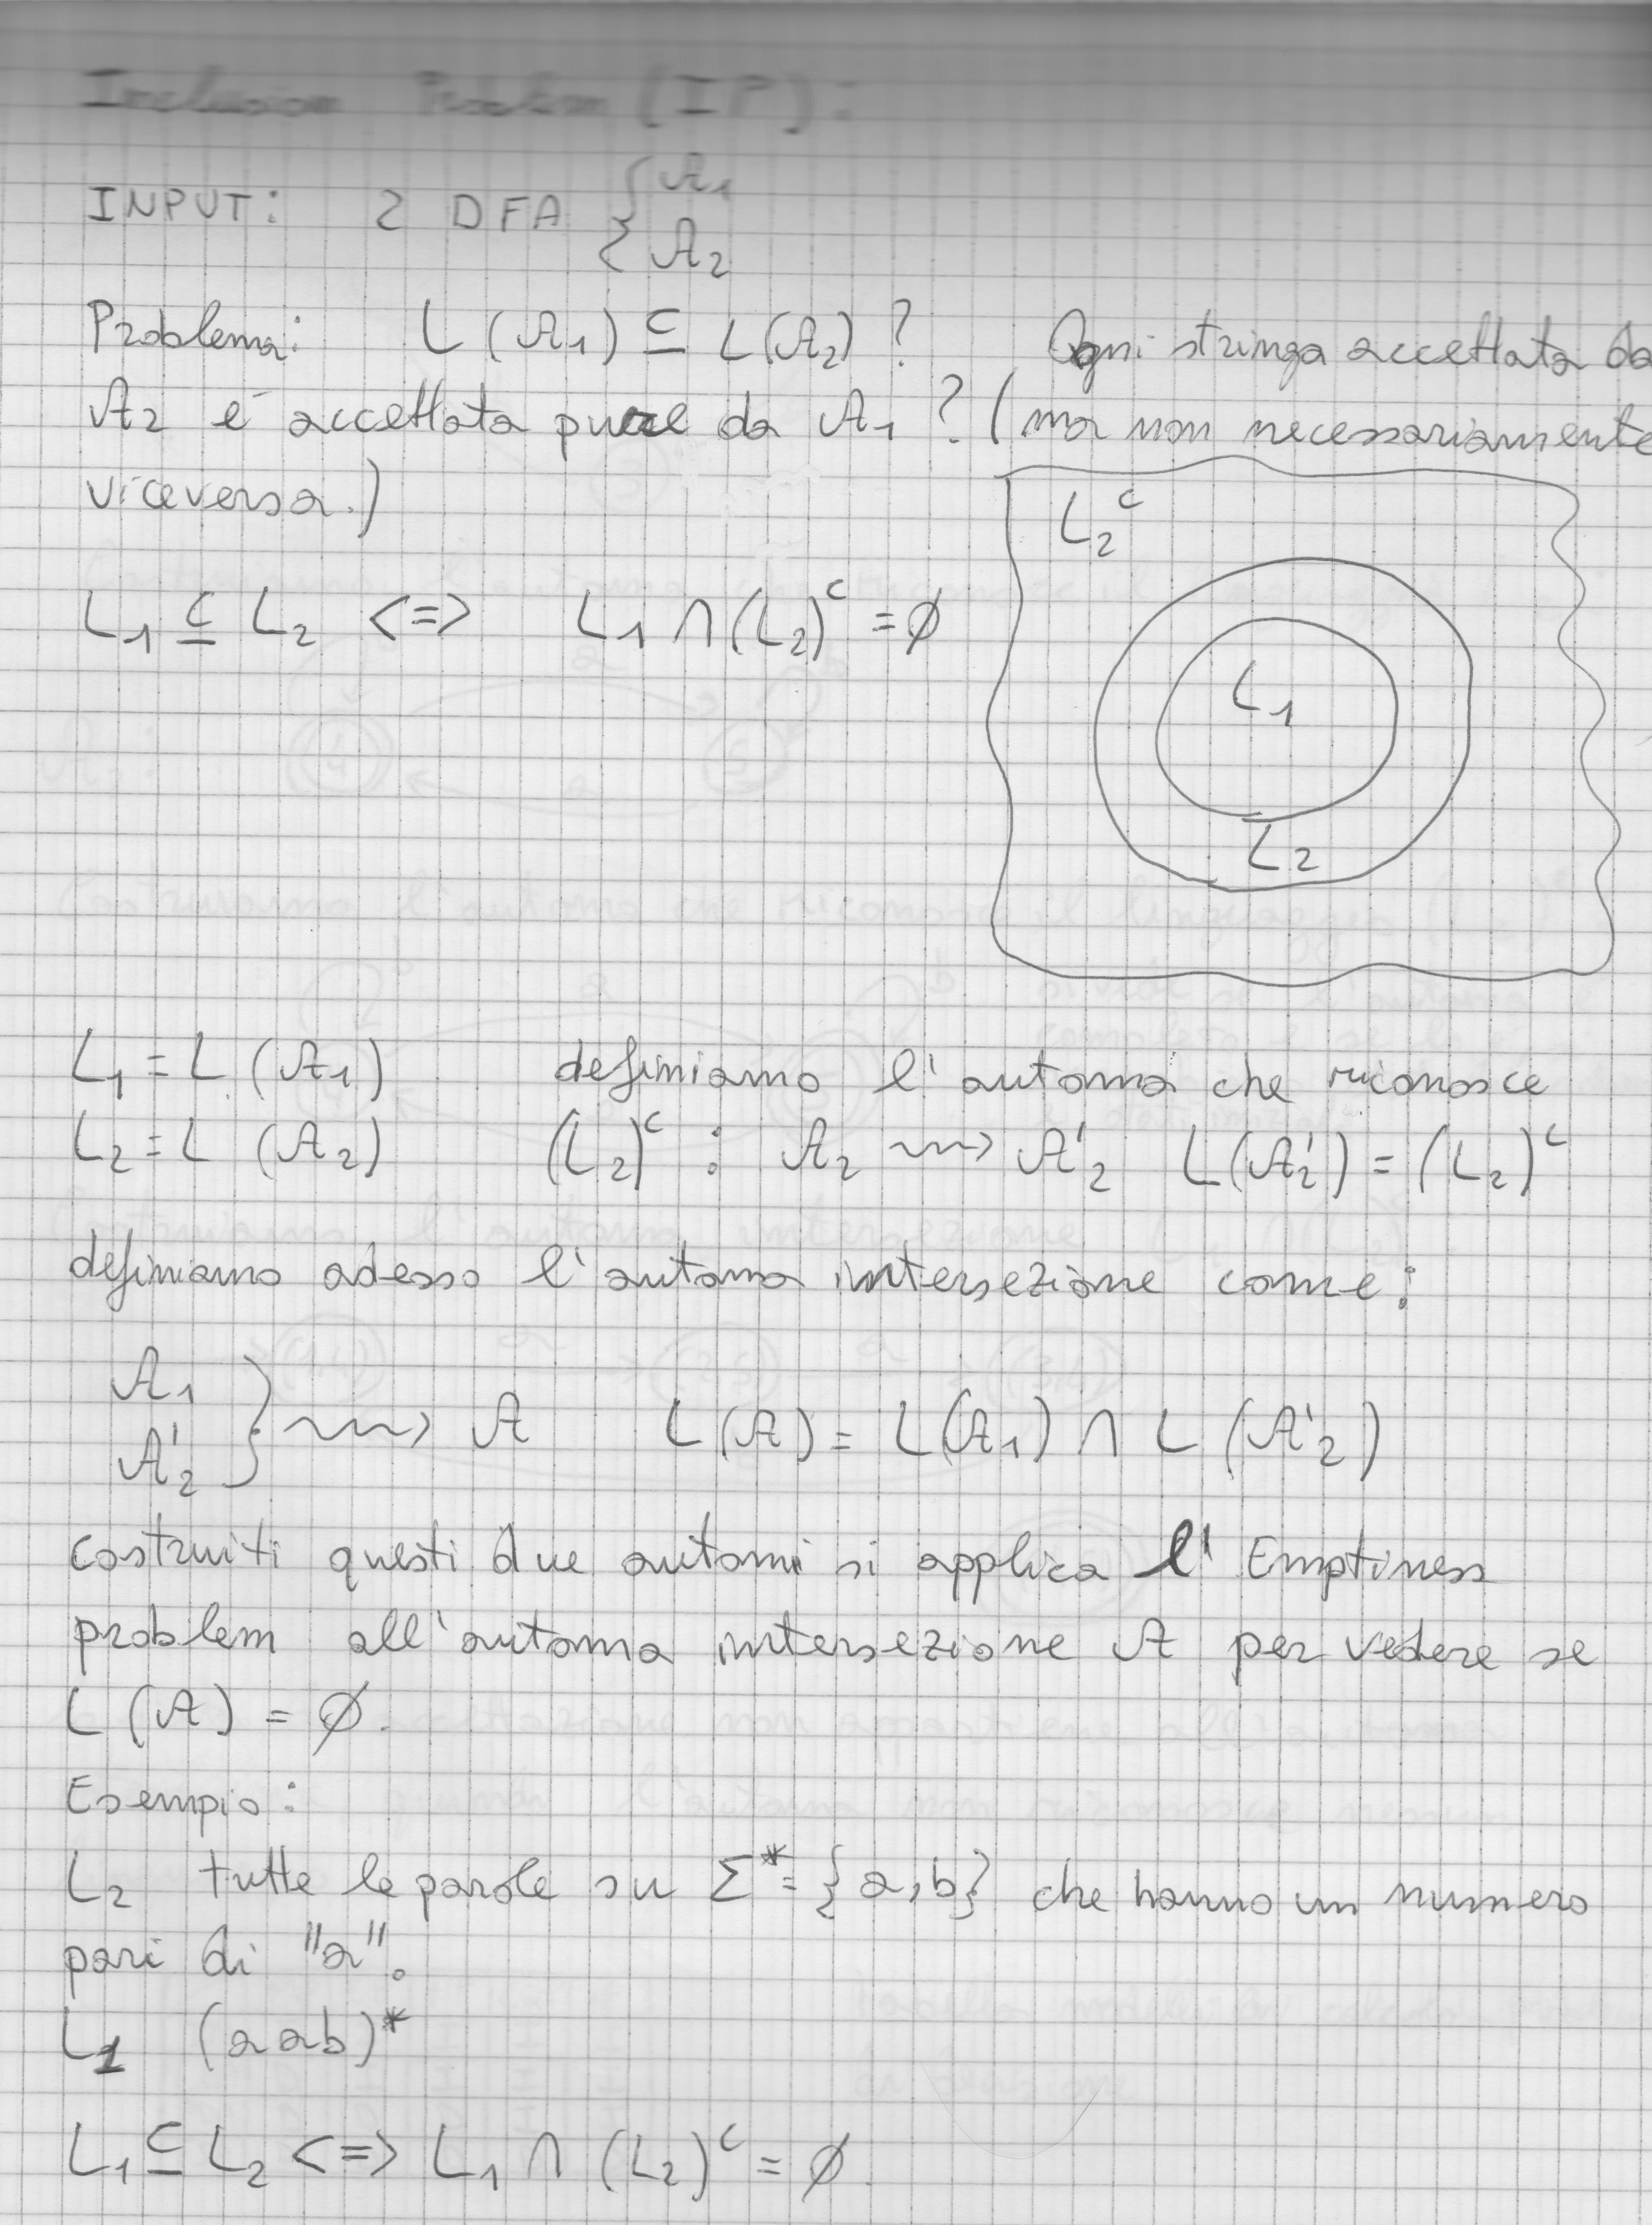 Inclusion Problem (IP):
INPUT: 2 DFA { A1
A2
Problema: L (A1) ⊆ L(A2) ? Ogni stringa accettata da
A2 è accettata pure da A1 ? (ma non necessariamente
viceversa.)
L2^c
L1 ⊆ L2 <=> L1 ∩ (L2)^c = ∅
L1
L2
L1 = L (A1) definiamo l' automa che riconosce
L2 = L (A2) (L2)^c : A2 ⇝ A'2 L(A'2) = (L2)^c
definiamo adesso l' automa intersezione come:
A1
A'2 } ⇝ A L(A) = L(A1) ∩ L (A'2)
costruiti questi due automi si applica l' Emptiness
problem all'automa intersezione A per vedere se
L (A) = ∅.
Esempio:
L2 tutte le parole su Σ* = {a,b} che hanno un numero
pari di "a".
L1 (aab)*
L1 ⊆ L2 <=> L1 ∩ (L2)^c = ∅.